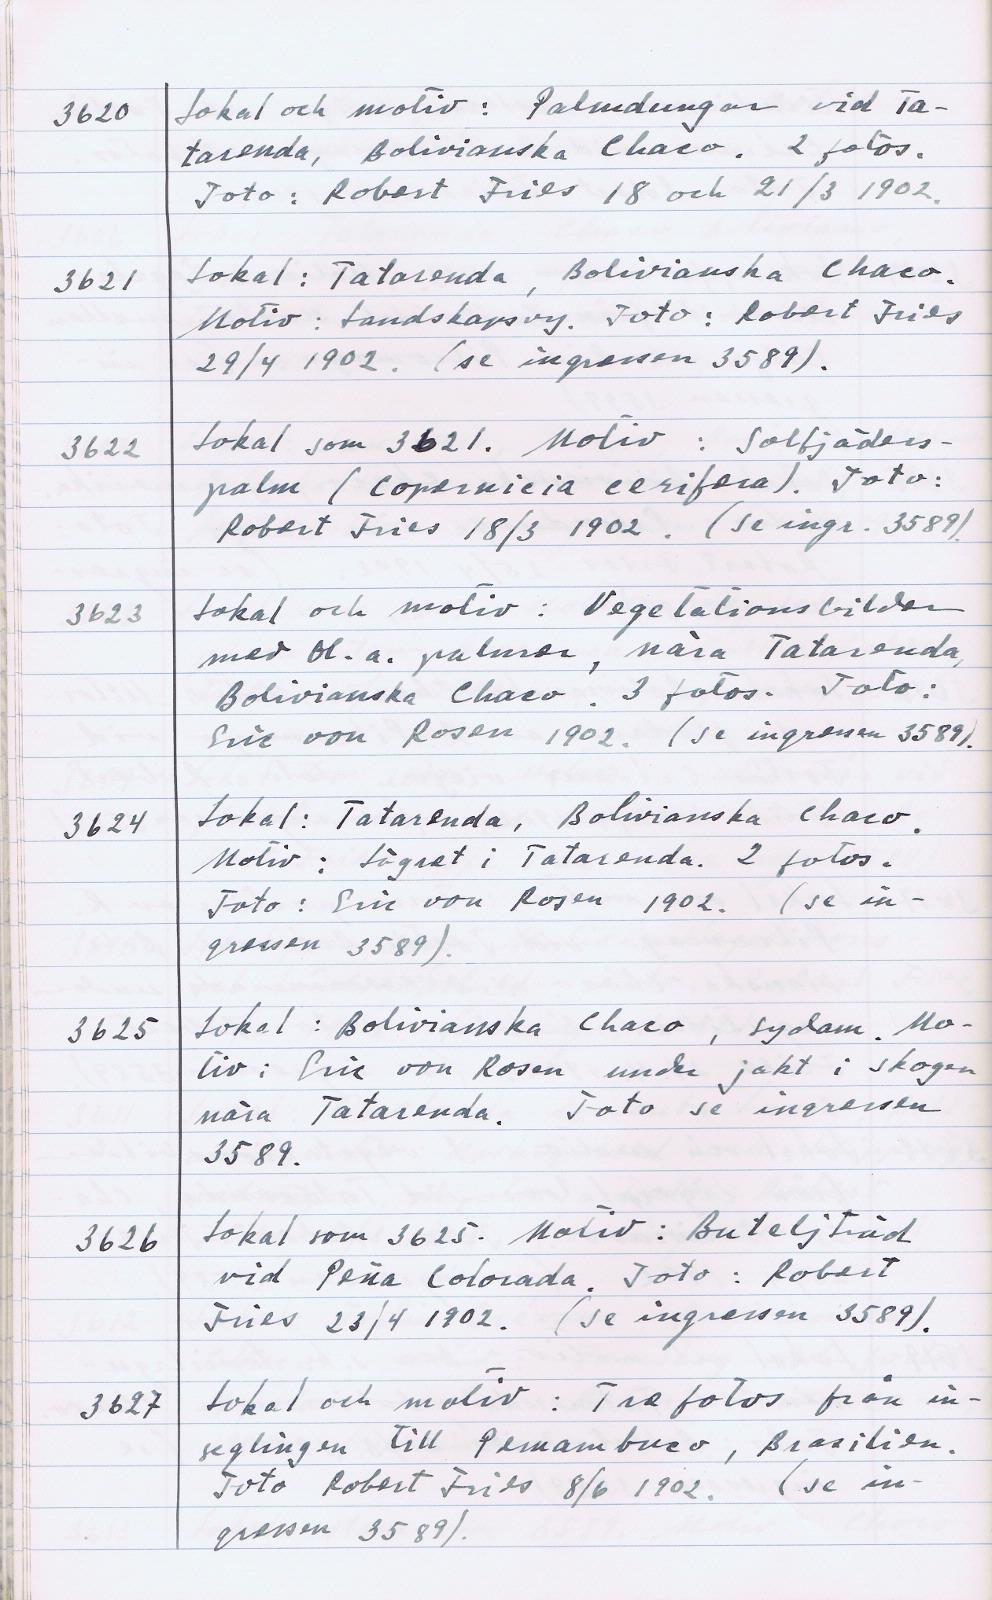 3620 Lokal och motiv : Palmdungar vid Ta-
tarenda, Bolivianska Chaco. 2 fotos.
Foto : Robert Fries 18 och 21/3 1902.
3621 Lokal : Tatarenda, Bolivianska Chaco.
Motiv : Landskapsvy. Foto : Robert Fries
29/4 1902. (se ingressen 3589).
3622 Lokal som 3621. Motiv : Solfjäders-
palm (Copernicia cerifera). Foto:
Robert Fries 18/3 1902. (Se ingr. 3589).
3623 Lokal och motiv : Vegetationsbilder
med bl. a. palmer, nära Tatarenda,
Bolivianska Chaco. 3 fotos. Foto:
Eric von Rosen 1902. (se ingressen 3589).
3624 Lokal: Tatarenda, Bolivianska Chaco.
Motiv : Lägret i Tatarenda. 2 fotos.
Foto : Eric von Rosen 1902. (se in-
gressen 3589).
3625 Lokal : Bolivianska Chaco, Sydam. Mo-
tiv : Eric von Rosen under jakt i skogen
nära Tatarenda. Foto se ingressen
3589.
3626 Lokal som 3625. Motiv : Buteljträd
vid Peña Colorada. Foto : Robert
Fries 23/4 1902. (se ingressen 3589).
3627 Lokal och motiv : Tre fotos från in-
seglingen till Pernambuco, Brasilien.
Foto Robert Fries 8/6 1902. (se in-
gressen 3589).